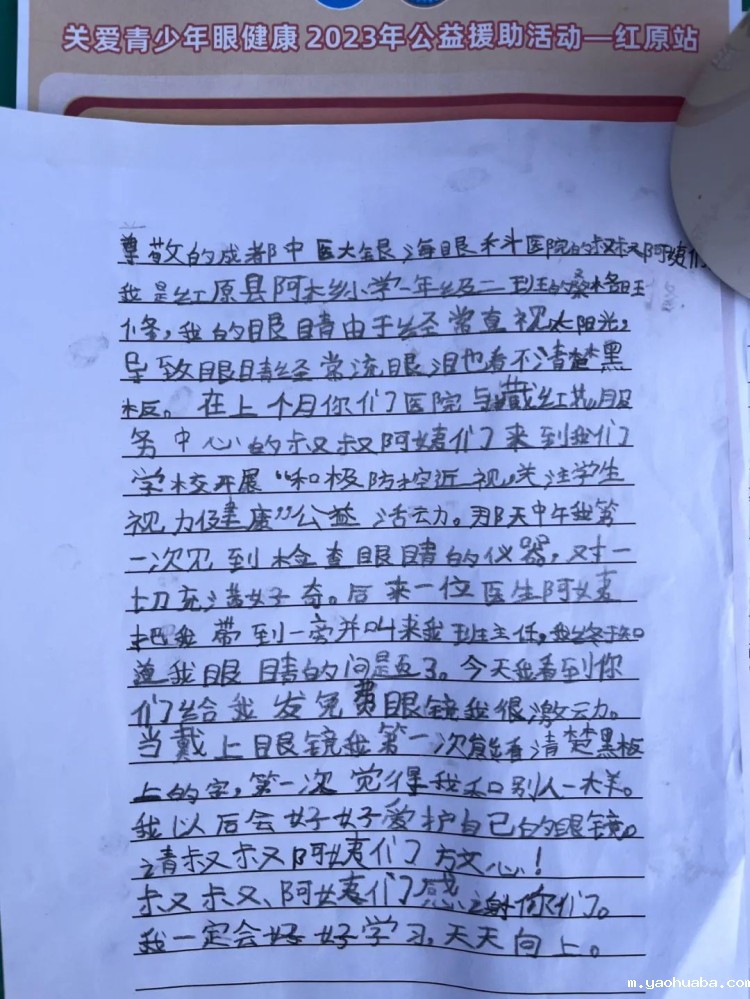 关爱青少年眼健康 2023年公益援助活动—红原站
尊敬的成都中医大银海眼科医院的叔叔阿姨们
我是红原县阿木乡小学一年级二班的桑格旺
修，我的眼睛由于经常直视太阳光，
导致眼睛经常流眼泪也看不清楚黑
板。在上个月你们医院与藏红花服
务中心的叔叔阿姨们来到我们
学校开展“积极防控近视，关注学生
视力健康”公益活动。那天中午我第
一次见到检查眼睛的仪器，对一
切充满好奇。后来一位医生阿姨
把我带到一旁并叫来我班主任，我终于知
道我眼睛的问题了。今天我看到你
们给我发免费眼镜我很激动。
当戴上眼镜我第一次能看清楚黑板
上的字，第一次觉得我和别人一样。
我以后会好好爱护自己的眼镜。
请叔叔阿姨们放心！
叔叔、阿姨们感谢你们。
我一定会好好学习，天天向上。
m.yaohuaba.com